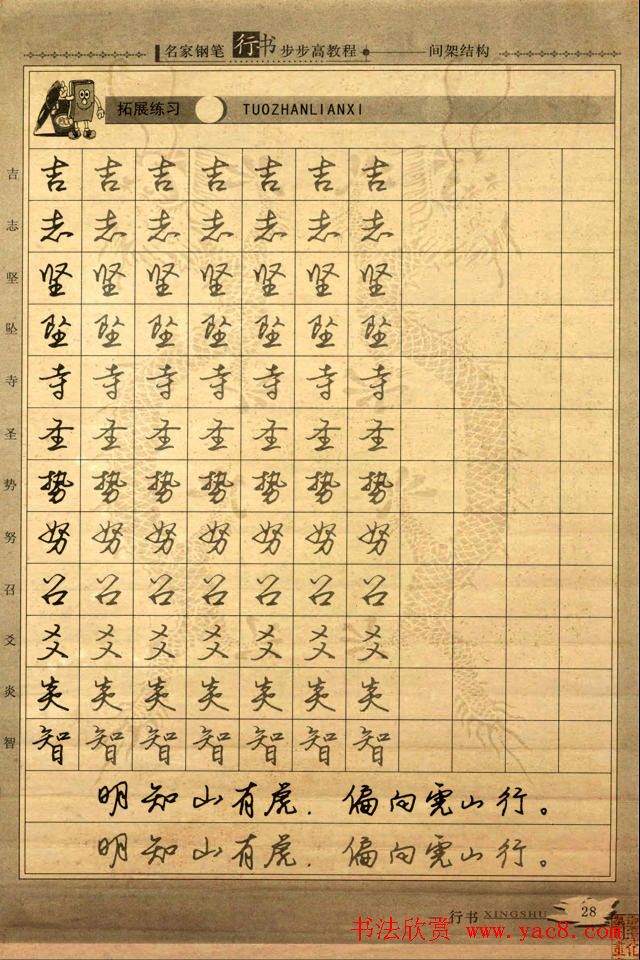 名家钢笔行书步步高教程 间架结构
拓展练习 TUOZHANLIANXI
吉 吉 吉 吉 吉 吉 吉 吉
志 志 志 志 志 志 志 志
坚 坚 坚 坚 坚 坚 坚 坚
坠 坠 坠 坠 坠 坠 坠 坠
寺 寺 寺 寺 寺 寺 寺 寺
圣 圣 圣 圣 圣 圣 圣 圣
势 势 势 势 势 势 势 势
努 努 努 努 努 努 努 努
召 召 召 召 召 召 召 召
爻 爻 爻 爻 爻 爻 爻 爻
炎 炎 炎 炎 炎 炎 炎 炎
智 智 智 智 智 智 智 智
明知山有虎，偏向虎山行。
明知山有虎，偏向虎山行。
行书 XINGSHU 28
书法欣赏 www.yac8.com